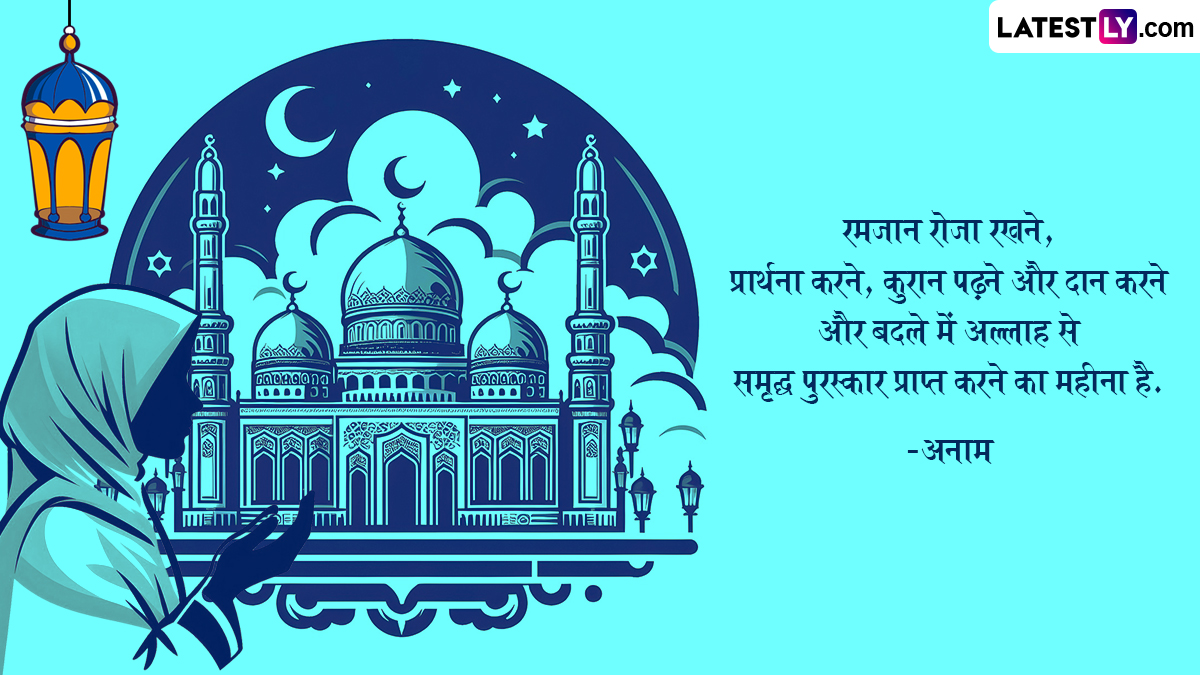 LATESTLY.com
रमजान रोजा रखने,
प्रार्थना करने, कुरान पढ़ने और दान करने
और बदले में अल्लाह से
समृद्ध पुरस्कार प्राप्त करने का महीना है.
-अनाम